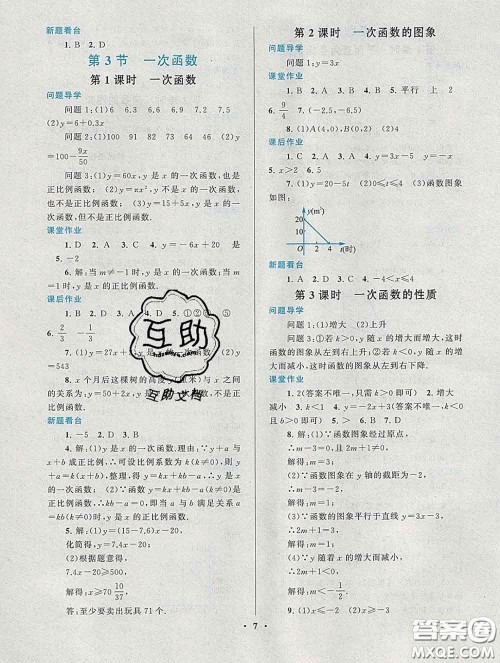 新题看台
1. B 2. D
第 3 节 一次函数
第 1 课时 一次函数
问题导学
问题 1：(1)6 6.3 6.6 6.9 7.2 7.5
(2)y=6+0.3x
问题 2：(1)100 91 82 73 64 46
(2)y=100-9x/50
问题 3：(1)y=60x，y 是 x 的一次函数，也是正
比例函数；(2)y=πx²，y 不是 x 的一次函数，也不
是正比例函数；(3)y=15+5x，y 是 x 的一次函
数，但不是 x 的正比例函数.
课堂作业
1. D 2. A 3. C 4. y=-6x+20 是
5. -2
6. 解：当 m≠-1 时，y 是 x 的一次函数；当
m=1 时，y 是 x 的正比例函数.
课后作业
1. B 2. D 3. B 4. A 5. ①②⑤ ①⑤
6. 2/3 -1/3
7. (1)y=27 (2)x=
8. x 个月后这棵树的高度 y(厘米)与 x 之间
的关系为 y=50+2x，y 是 x 的一次函数.
新题看台
1. -5 2. D 3. B
4. 解：(1)y 是 x 的一次函数.理由：∵y+a 与
x+b 成正比例，∴可设比例系数为 k(k≠0)，则有
y+a=k(x+b)，整理，得 y=kx+kb-a，∴y 是 x
的一次函数；(2)∵y=kx+kb-a，∴若要使得 y 是
x 的正比例函数，则 kb-a=0，即 a 与 b 满足关系
a=kb(k≠0)时，y 是 x 的正比例函数.
5. 解：(1)y=(15-7.6)x-20，
化简得，y=7.4x-20；
(2)根据题意得，
7.4x-20≥500，
解得，x≥70 10/37，
答：至少要卖出玩具 71 个.
第 2 课时 一次函数的图象
问题导学
问题 1：y=3x
课堂作业
1. C 2. B 3. A 4. B 5. 平行 上 2
6. 9/4 7. (-2.5,-6.5)
8. (1)A(4,0)，B(0,2) (2)4
课后作业
1. C 2. A 3. C 4. y=x-5 5. -1
6. >1 7. -2
8. (1)y=20-5t (2)0≤t≤4 (3)函数图象
如图：
y(m³)
20
O 4 t(时)
新题看台
1. B 2. D 3. A 4. -4≤b≤4
第 3 课时 一次函数的性质
问题导学
问题 1：(1)增大 (2)上升
问题 2：①若 k>0，则 y 随 x 的增大而增大，这时
函数的图象从左到右上升；②若 k<0，则 y 随 x
的增大而减小，这时函数的图象从左到右下降.
课堂作业
1. 2(答案不唯一，只需 k>0 即可) 2. 增大
减小 3. k<1 4. y=-2x+3(答案不唯一，k<0
且 b>0 即可)
5. 解：(1)∵函数图象经过原点，
∴m-3=0，
解得：m=3；
(2)∵函数图象在 y 轴的截距为-2，
∴m-3=-2，
解得：m=1；
(3)∵函数的图象平行于直线 y=3x-3，
∴2m+1=3，
解得：m=1；
(4)∵y 随着 x 的增大而减小，
∴2m+1<0，
解得：m<-1/2.
9. (1)x=2 (2)x≥3 (3)x≤0
互助
互助文档
· 7 ·
答案圈
MXQE.COM